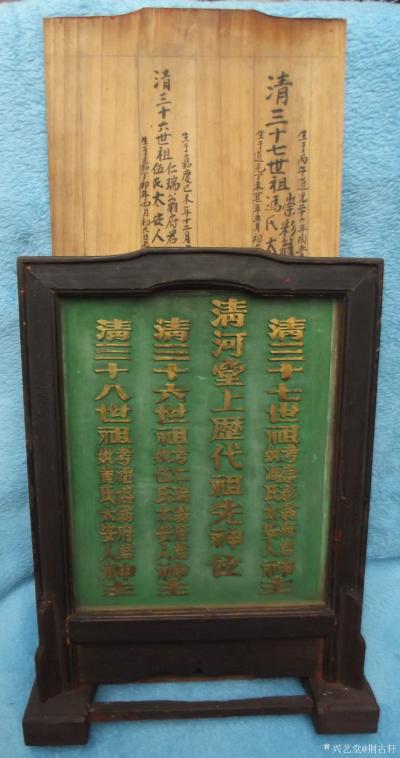 清三十七世祖崇彩翁
馮氏太
生于丙午道光二十六年
清三十六世祖仁瑞翁府君
伍氏太安人
生于嘉慶己未年十二月
清三十七世祖考崇彩翁府君神主
妣馮氏太安人
清河堂上歷代祖先神位
清三十六世祖考仁瑞翁府君神主
妣伍氏太安人
清三十八世祖考禮 翁府君神主
妣黃氏太安人
兴艺堂@荆古轩